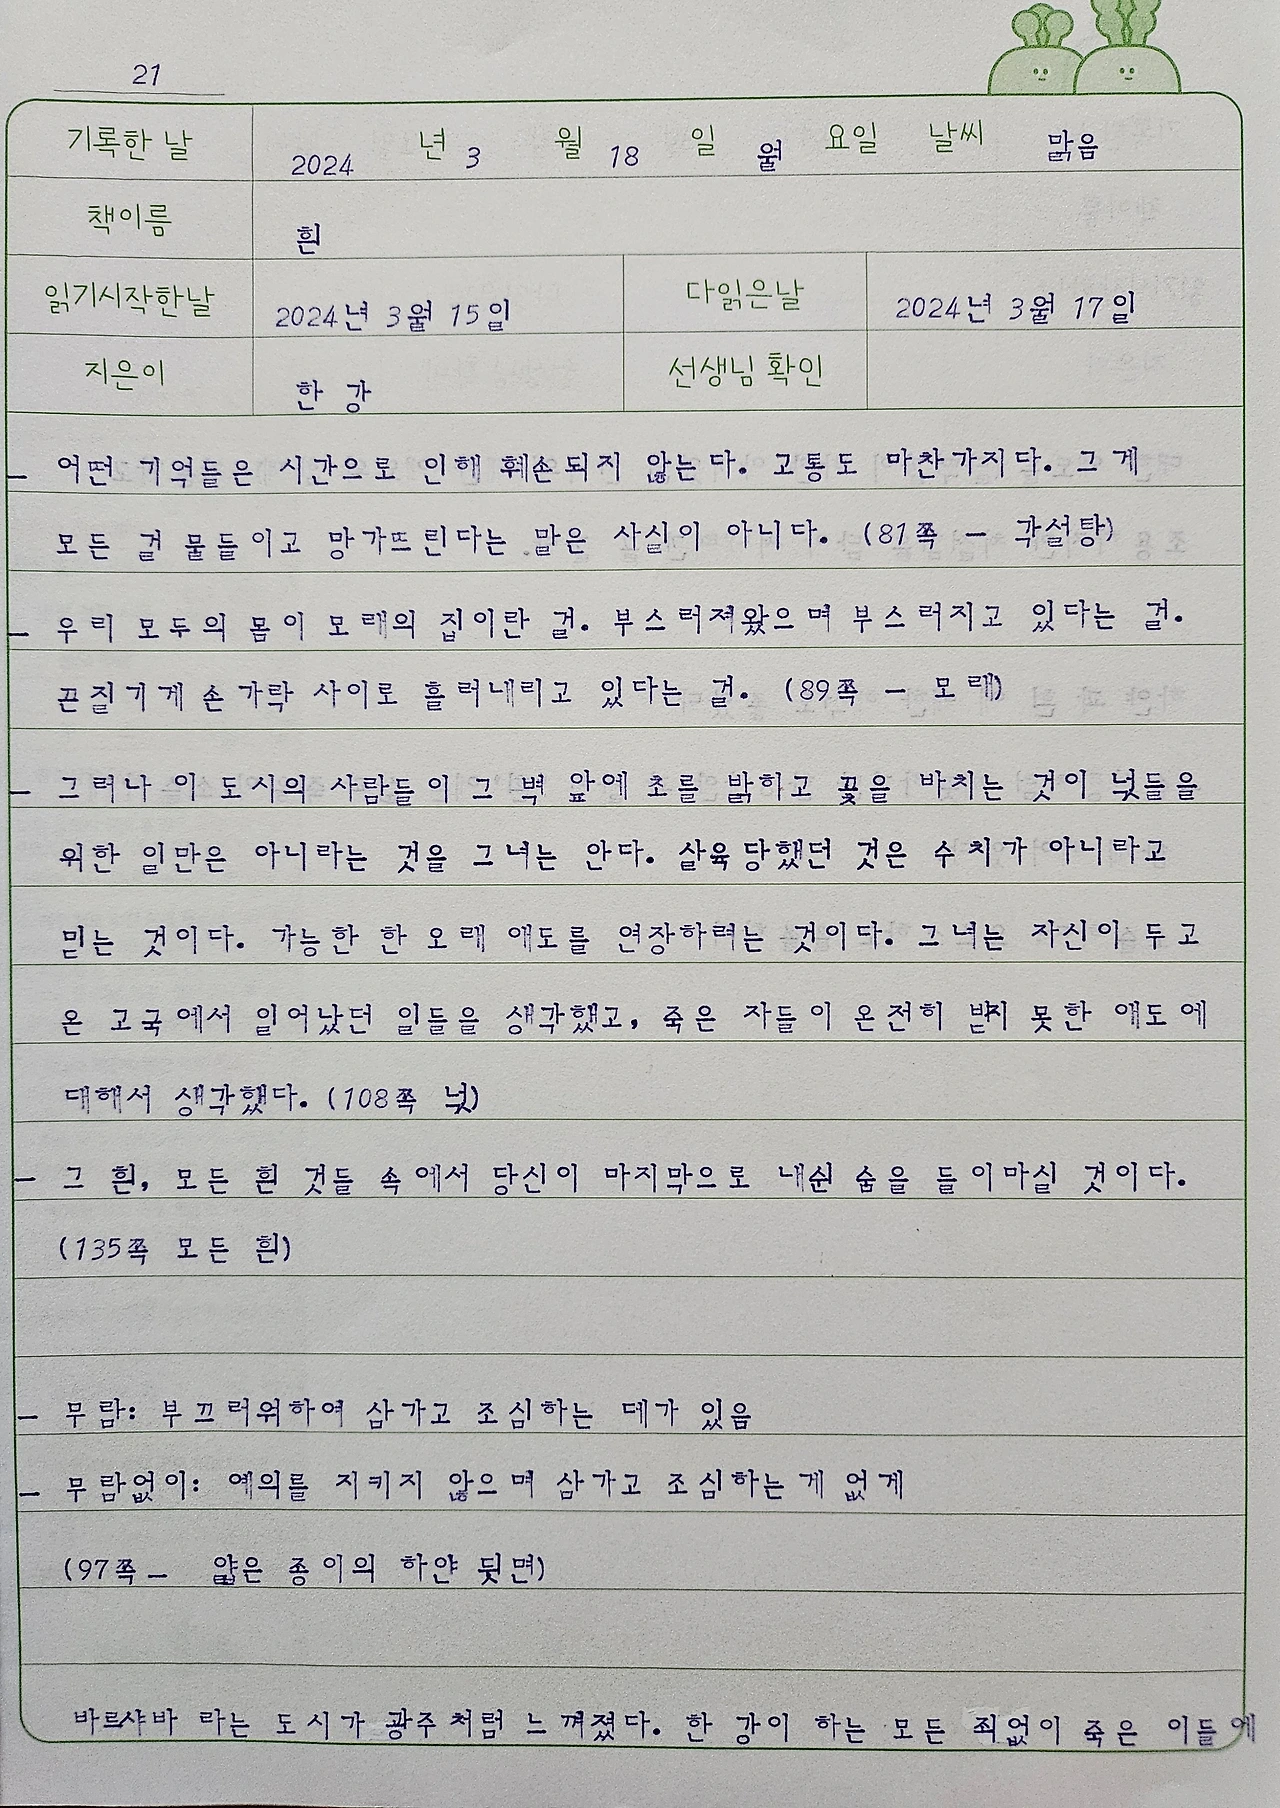 21
기록한 날 2024 년 3 월 18 일 월 요일 날씨 맑음
책이름 흰
읽기시작한날 2024년 3월 15일 다읽은날 2024년 3월 17일
지은이 한 강 선생님 확인
– 어떤 기억들은 시간으로 인해 훼손되지 않는다. 고통도 마찬가지다. 그게
모든 걸 물들이고 망가뜨린다는 말은 사실이 아니다. (81쪽 – 각설탕)
– 우리 모두의 몸이 모래의 집이란 걸. 부스러져왔으며 부스러지고 있다는 걸.
끈질기게 손가락 사이로 흘러내리고 있다는 걸. (89쪽 – 모래)
– 그러나 이 도시의 사람들이 그 벽 앞에 초를 밝히고 꽃을 바치는 것이 넋들을
위한 일만은 아니라는 것을 그녀는 안다. 살육당했던 것은 수치가 아니라고
믿는 것이다. 가능한 한 오래 애도를 연장하려는 것이다. 그녀는 자신이 두고
온 고국에서 일어났던 일들을 생각했고, 죽은 자들이 온전히 받지 못한 애도에
대해서 생각했다. (108쪽 넋)
– 그 흰, 모든 흰 것들 속에서 당신이 마지막으로 내쉰 숨을 들이마실 것이다.
(135쪽 모든 흰)
– 무람: 부끄러워하여 삼가고 조심하는 데가 있음
– 무람없이: 예의를 지키지 않으며 삼가고 조심하는게 없게
(97쪽 – 얇은 종이의 하얀 뒷면)
바르샤바 라는 도시가 광주처럼 느껴졌다. 한 강이 하는 모든 죄없이 죽은 이들에